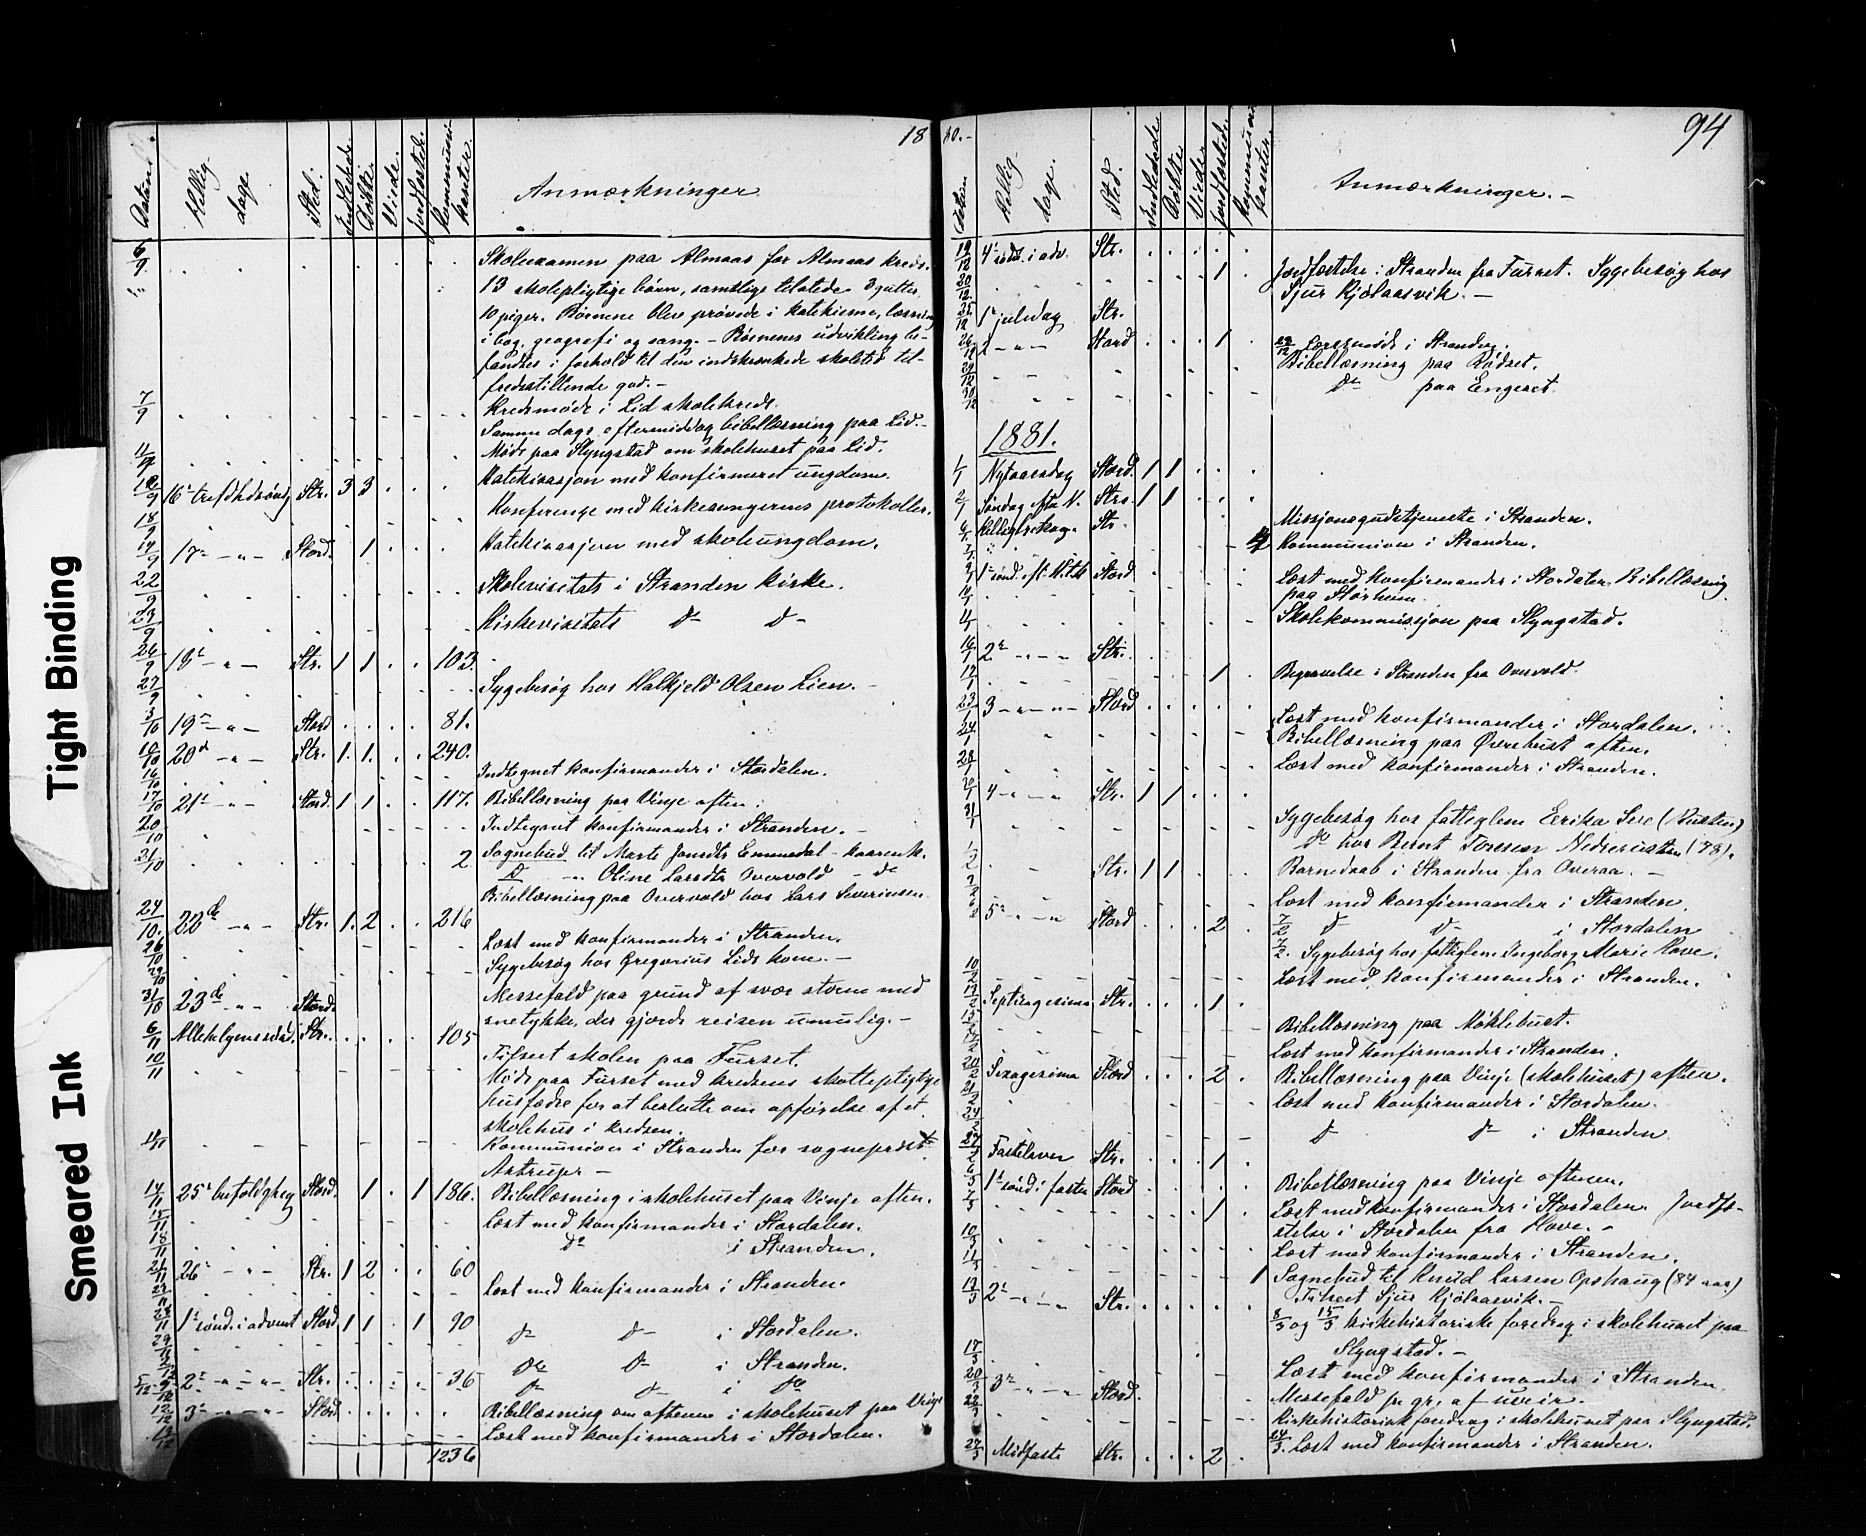 Tight Binding
Smeared Ink
18
Datum. Hellig dage. Sted. Indledede Døbte. Viede. Jordfæstede. Kommunikanter. Anmærkninger
6/9 Skoleexamen paa Almaas for Almaas kreds.
13 skolepligtige børn, samtlige tilstede 3 gutter
10 piger. Børnene blev prøvede i katekisme, læsning
i bog, geografi og sang. – Børnenes udvikling be-
fandtes i forhold til den indskrænkede skoletid til-
fredsstillende god. –
7/9 Kredsmøde i Lid skolekreds.
Samme dags eftermiddag bibellæsning paa Lid. –
Møde paa Slyngstad om skolehuset paa Lid.
12/9 16de Str. 3 3 Katekisasjon med konfirmeret ungdom.
18/9 Konferense med kirkesangerens protokoller.
19/9 17de – " – Stord. 1 Katekisasjon med skoleungdom.
22/9 Skolevisitats i Stranden kirke.
23/9 Kirkevisitats do do
26/9 18de – " – Str. 1 1 103.
27/9 Sygebesøg hos Halkjeld Olsen Lien. –
3/10 19de – " – Stord 81.
10/10 20de – " – Str. 1. 1. 240.
16/10 Indtegnet konfirmander i Stordalen.
17/10 21de – " – Stord. 1 1 117. Bibellæsning paa Vinje aften.
20/10 Indtegnet konfirmander i Stranden. –
21/10 2 Sognebud til Marte Emmedal
do – " Oline Larsdtr Overvold – do
Bibellæsning paa Overvold hos Lars Severinsen.
24/10. 22de – " – Str. 1. 2 216
26/10 Læst med konfirmander i Stranden.
29/10 Sygebesøg hos Gregorius Lids kone. –
31/10 23de – " – Stord. Messefald paa grund af svær storm med
snetykke, der gjorde reisen umulig. –
6/11 Allehelgens Str. 105
10/11 Tilseet skolen paa Furset.
Møde paa Furset med kredsens skattepligtige
husfædre for at beslutte om opførelse af et
skolehus i kredsen.
11/11 Kommunion i Stranden for sogneprest
Astrups –
14/11 25de Stord. 1 1 186. Bibellæsning i skolehuset paa Vinje aften.
15/11 Læst med konfirmander i Stordalen.
18/11 do i Stranden.
21/11 26de – " – Str. 1 2 60
Læst med konfirmander i Stranden.
28/11 1ste sønd. i advent Stord 1 1 1 90
29/11 do do i Stordalen.
do do i Stranden.
5/12 2de – " – " – Str. 36
do do i do
12/12 3de – " – " – Stord Bibellæsning om aftenen i skolehuset paa Vinje
13/12 Læst med konfirmander i Stordalen.
1236
80. –
94
Datum Hellig dage. Sted. Indledede Døbte Viede Jordfæstede. Kommunikanter. Anmærkninger. –
19/12 4de sønd. i adv. Str.
20/12. 1 Jordfæstelse i Stranden fra Furset. Sygebesøg hos
Sjur Kjølaasvik. –
25/12 1ste juledag Str.
26/12 2 – " – Stord 1 i Stranden.
29/12 Bibellæsning paa Rødset.
30/12 do paa Engeset.
1881.
1/1 Nytaarsdag Stord. 1 1
2/1 Søndag efter N. Str. 1 1
6/1 Str. Missjonsgudstjeneste i Stranden.
7/1 Kommunion i Stranden.
9/1 1ste sønd. Stord
10/1 Læst med konfirmander i Stordalen. Bibellæsning
paa Størheim.
11/1 Skolekommissjon paa Slyngstad.
16/1 2de – " – " Str.
17/1 1 Begravelse i Stranden fra Overvold.
23/1 3 – " – " – Stord
24/1 Læst med konfirmander i Stordalen.
Bibellæsning paa Øvrebust aften.
28/1 Læst med konfirmander i Stranden.
30/1 4 – " – " Str. 1 1
31/1 Sygebesøg hos fattiglem Erika
do hos Bernt (78).
1/2 Str. 1 1 Barnedaab i Stranden fra Overaa. –
Læst med konfirmander i Stranden.
6/2 5te – " – " Stord 2 7/2 do do i Stordalen
7/2. Sygebesøg hos fattiglem Ingeborg Marie Hove.
10/2 Læst med konfirmander i Stranden.
13/2 Septuagesima Str. 1
Bibellæsning paa Møklebust.
17/2 Læst med konfirmander i Stranden.
20/2 Sexagesima Stord 2 Bibellæsning paa Vinje (skolehuset) aften.
21/2 Læst med konfirmander i Stordalen.
24/2 do do i Stranden
27/2 Fastelavn Str. 1
6/3 1ste sønd. i fasten Stord Bibellæsning paa Vinje aftenen.
7/3 1 Læst med konfirmander i Stordalen. Jordfæ-
stelse i Stordalen fra Hove. –
10/3 Læst med konfirmander i Stranden.
11/3 1 Sognebud til Knud Larsen Opshaug (84 aar)
13/3 2de – " – " Str. Tilseet Sjur Kjølaasvik. –
8/3 og 15/3 kirkehistoriske foredrag i skolehuset paa
Slyngstad. –
17/3 Læst med konfirmander i Stranden.
20/3 3de – " – " Stord. Messefald p. gr. af uveir.
22/3 Kirkehistorisk foredrag i skolehuset paa Slyngstad.
24/3. Læst med konfirmander i Stranden.
27/3 Midfaste Str. 2